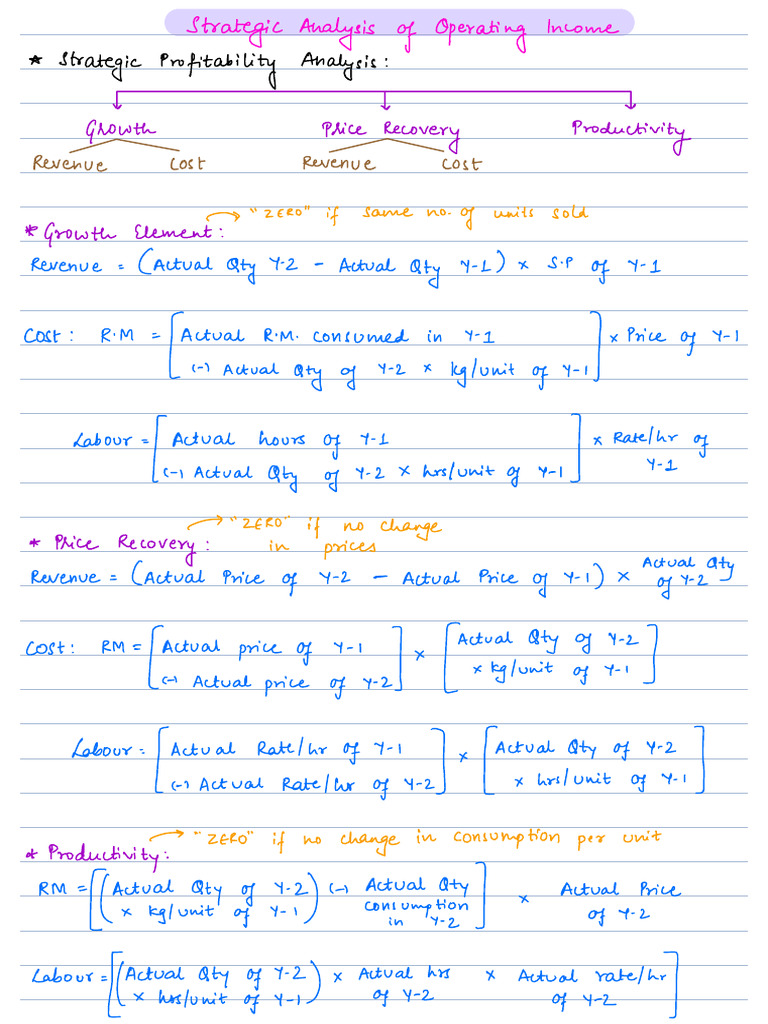 Strategic Analysis of Operating Income
* Strategic Profitability Analysis:
Growth Price Recovery Productivity
Revenue Cost Revenue Cost
"ZERO" if same no. of units sold
* Growth Element:
Revenue = (Actual Qty Y-2 - Actual Qty Y-1) × S.P of Y-1
Cost: R.M = [Actual R.M. consumed in Y-1
(-) Actual Qty of Y-2 × kg/unit of Y-1] × Price of Y-1
Labour = [Actual hours of Y-1
(-) Actual Qty of Y-2 × hrs/unit of Y-1] × Rate/hr of
Y-1
"ZERO" if no change
in prices
* Price Recovery:
Revenue = (Actual Price of Y-2 - Actual Price of Y-1) × Actual Qty
of Y-2
Cost: RM = [Actual price of Y-1
(-) Actual price of Y-2] × [Actual Qty of Y-2
× kg/unit of Y-1]
Labour = [Actual Rate/hr of Y-1
(-) Actual Rate/hr of Y-2] × [Actual Qty of Y-2
× hrs/unit of Y-1]
"ZERO" if no change in consumption per unit
* Productivity:
RM = [(Actual Qty of Y-2
× kg/unit of Y-1) (-) Actual Qty
consumption
in Y-2] × Actual Price
of Y-2
Labour = [(Actual Qty of Y-2
× hrs/unit of Y-1) × Actual hrs
of Y-2 × Actual rate/hr
of Y-2]